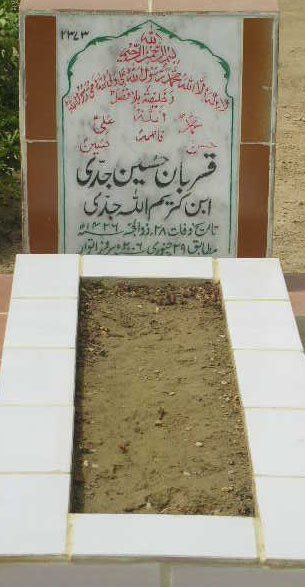 اللہ
۲۳۷۳
بسم اللہ الرحمن الرحیم
لا الہ الا اللہ محمد رسول اللہ علی ولی اللہ وصی رسول اللہ
و خلیفتہ بلا فصل
یا اللہ
محمد علی
فاطمہ
حسن حسین
قربان حسین جدّی
ابن کریم اللہ جدّی
تاریخ وفات ۲۸ ذوالحجہ ۱۴۲۶ھ
مطابق ۲۹ جنوری ۲۰۰۶ بروز اتوار